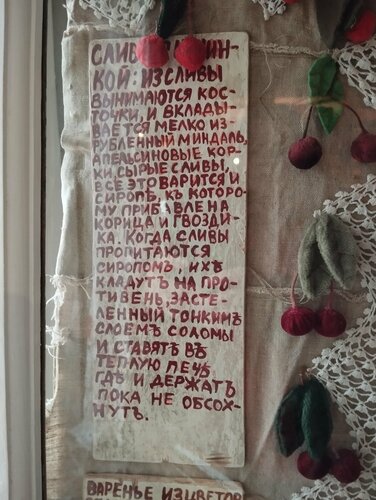 СЛИВЫ ЧИН-
КОЙ: ИЗ СЛИВЫ
ВЫНИМАЮТСЯ КОС-
ТОЧКИ, И ВКЛАДЫ-
ВАЕТСЯ МЕЛКО ИЗ-
РУБЛЕННЫЙ МИНДАЛЬ,
АПЕЛЬСИНОВЫЕ КОР-
КИ, СЫРЫЕ СЛИВЫ,
ВСЕ ЭТО ВАРИТСЯ И
СИРОПЪ, КЪ КОТОРО-
МУ ПРИБАВЛЕНА
КОРИЦА И ГВОЗДИ-
КА. КОГДА СЛИВЫ
ПРОПИТАЮТСЯ
СИРОПОМЪ, ИХЪ
КЛАДУТЪ НА ПРО-
ТИВЕНЬ, ЗАСТЕ-
ЛЕННЫЙ ТОНКИМЪ
СЛОЕМЪ СОЛОМЫ
И СТАВЯТЪ ВЪ
ТЕПЛУЮ ПЕЧЬ
ГДѢ И ДЕРЖАТЪ
ПОКА НЕ ОБСОХ-
НУТЪ.
ВАРЕНЬЕ ИЗ ЦВЕТОВ